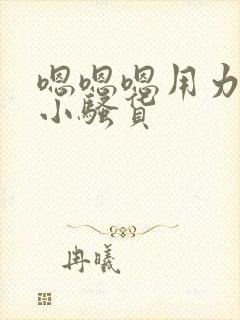 嗯嗯嗯用力
小骚货
冉曦